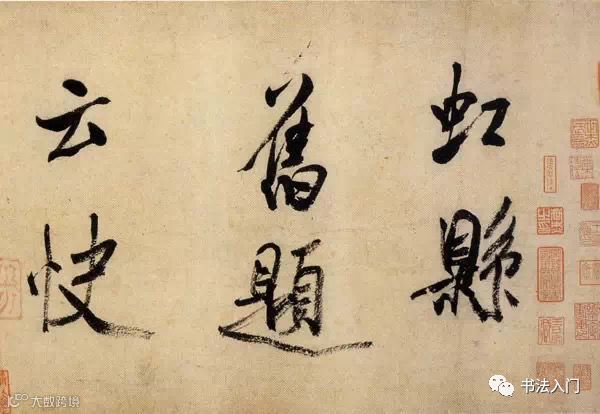 虹縣
舊題
云快
书法入门
大数跨境